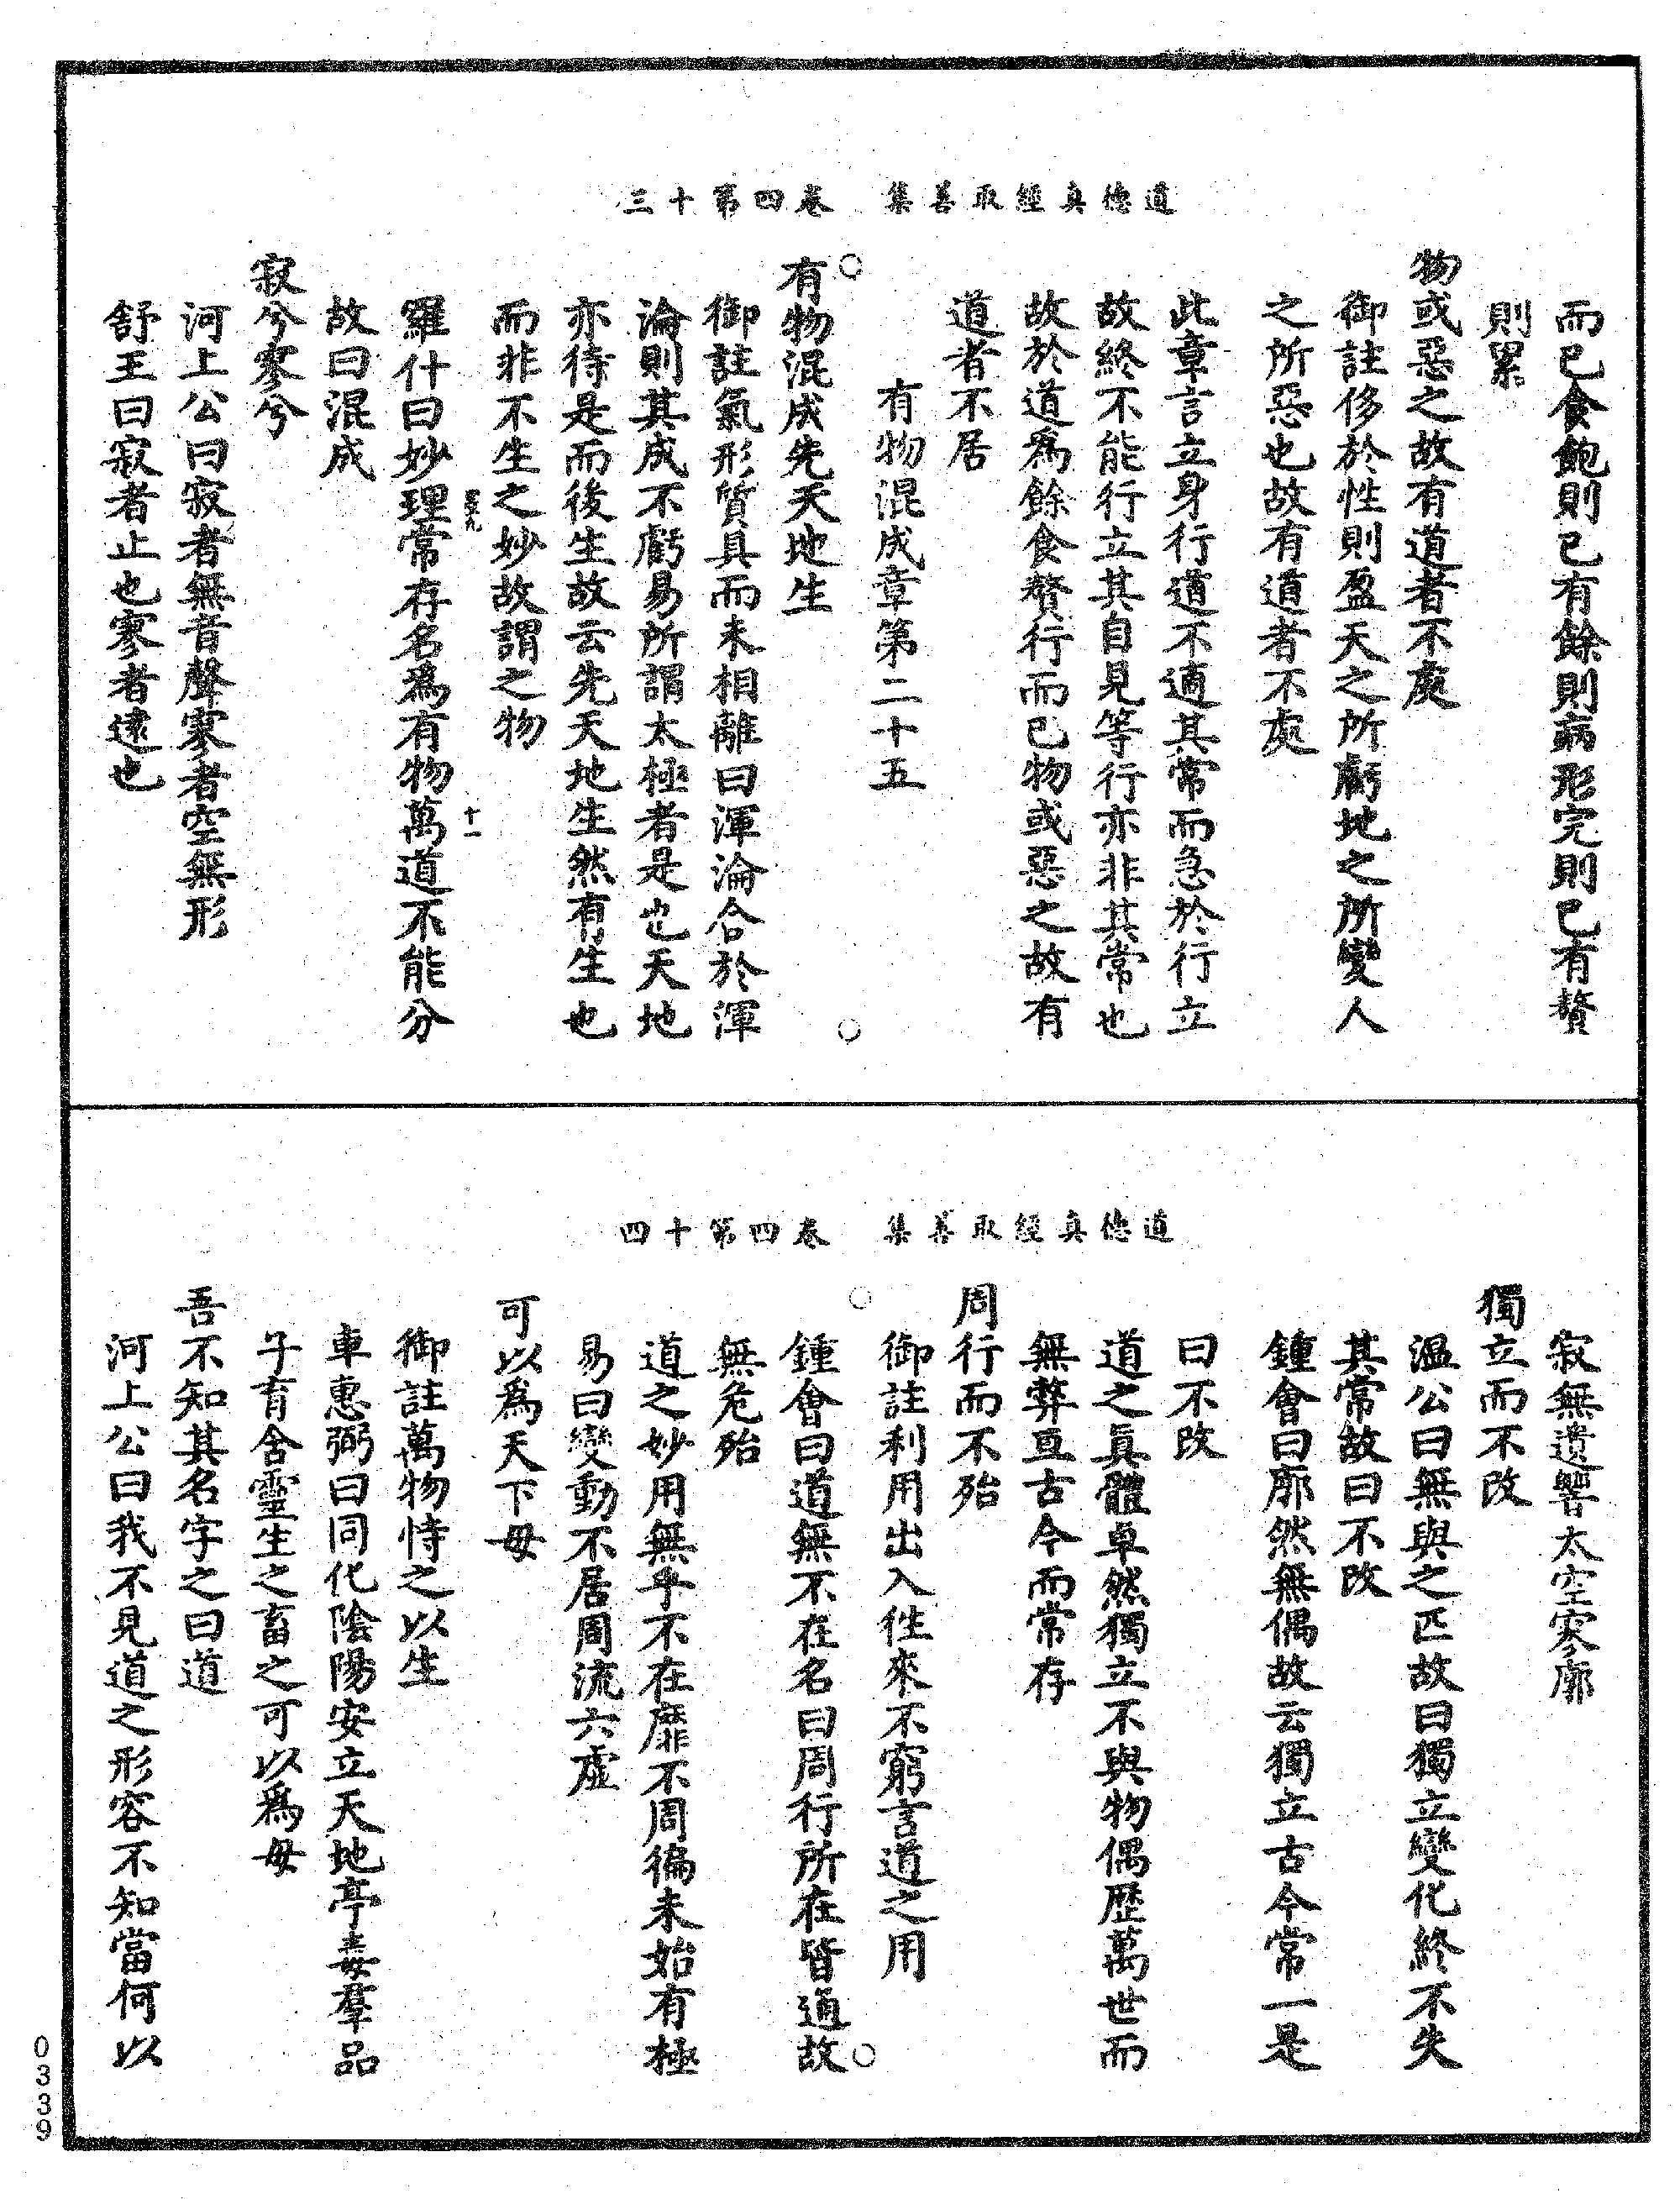 道德真經取善集　卷四第十三
而已食飽則已有餘則病形完則已有贅
則累
物或惡之故有道者不處
御註侈於性則盈天之所虧地之所變人
之所惡也故有道者不處
此章言立身行道不適其常而急於行立
故終不能行立其自見等行亦非其常也
故於道為餘食贅行而已物或惡之故有
道者不居
有物混成章第二十五
有物混成先天地生
御註氣形質具而未相離曰渾淪合於渾
淪則其成不虧易所謂太極者是也天地
亦待是而後生故云先天地生然有生也
而非不生之妙故謂之物
十一
羅什曰妙理常存名為有物萬道不能分
故曰混成
寂兮寥兮
河上公曰寂者無音聲寥者空無形
舒王曰寂者止也寥者遠也
道德真經取善集　卷四第十四
寂無遺響太空寥廓
獨立而不改
溫公曰無與之匹故曰獨立變化終不失
其常故曰不改
鍾會曰廓然無偶故云獨立古今常一是
曰不改
道之真體卓然獨立不與物偶歷萬世而
無弊亙古今而常存
周行而不殆
御註利用出入往來不窮言道之用
鍾會曰道無不在名曰周行所在皆通故
無危殆
道之妙用無乎不在靡不周徧未始有極
易曰變動不居周流六虛
可以為天下母
御註萬物恃之以生
車惠弼曰同化陰陽安立天地亭毒羣品
子育含靈生之畜之可以為母
吾不知其名字之曰道
河上公曰我不見道之形容不知當何以
0339